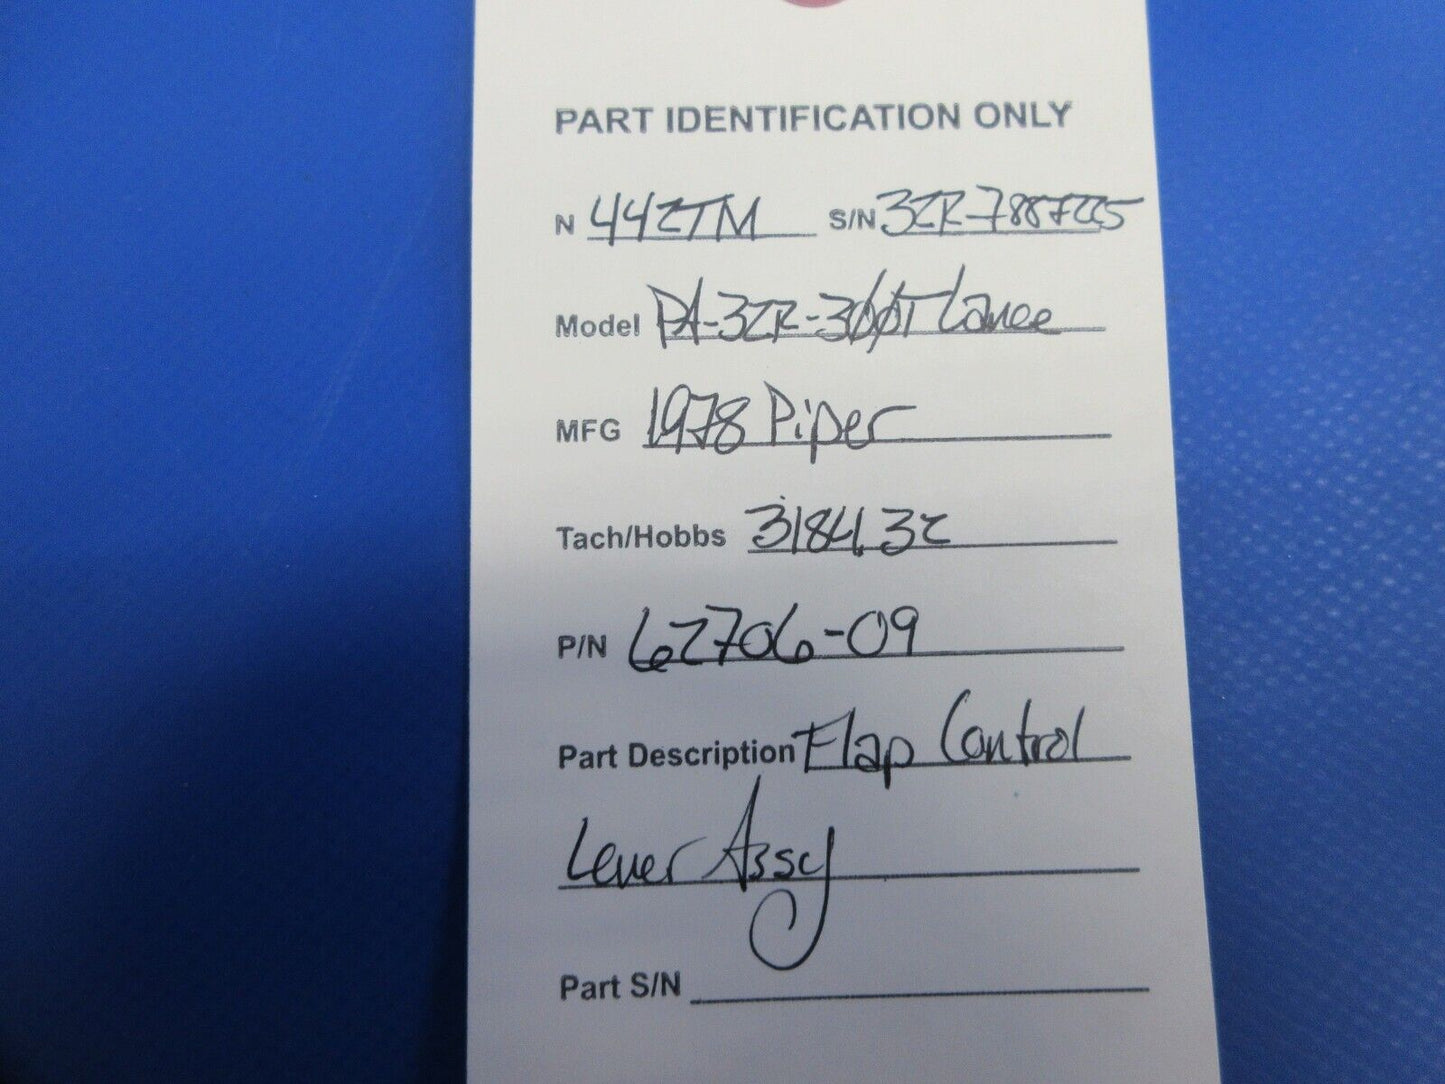 PART IDENTIFICATION ONLY
N 442TM S/N 32R-7887225
Model PA-32R-300T Lance
MFG 1978 Piper
Tach/Hobbs 3184.32
P/N 62706-09
Part Description Flap Control
Lever Assy
Part S/N